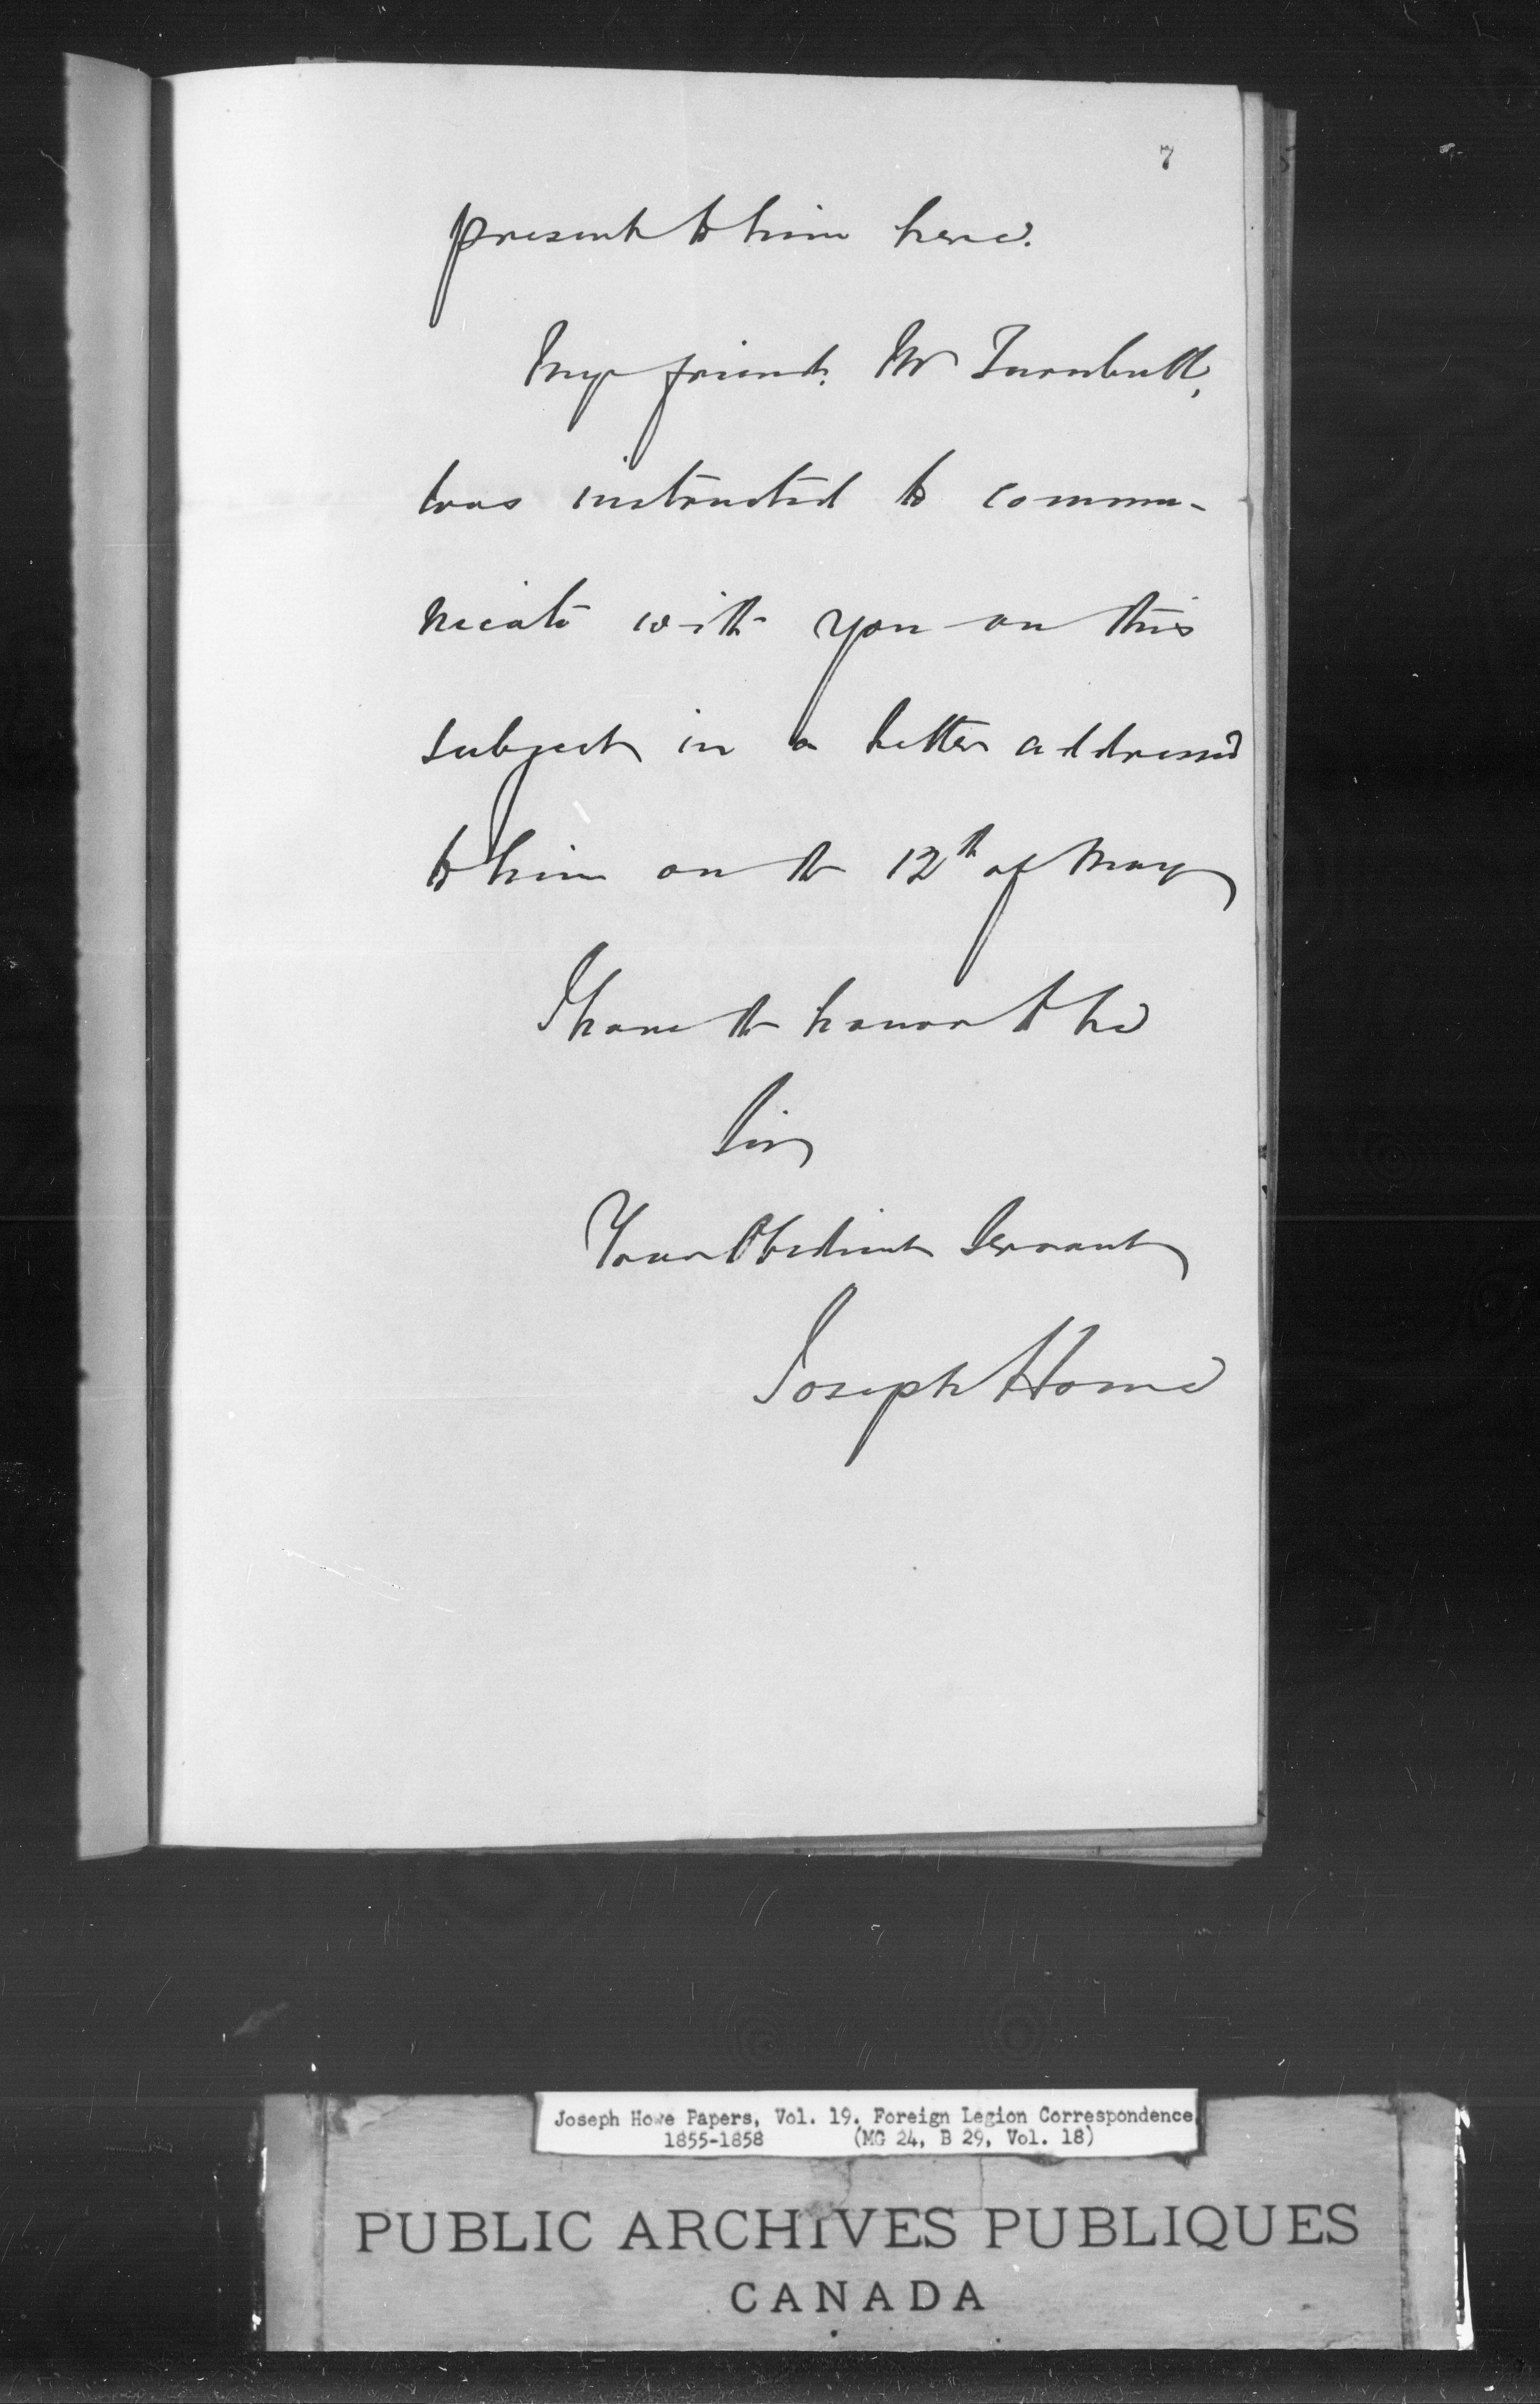 7
present to him here.
My friend, Mr Turnbull,
was instructed to commu-
nicate with you on this
subject in a letter addressed
to him on the 12th of May
I have the honor to be
Sir
Your Obedient Servant
Joseph Howe
Joseph Howe Papers, Vol. 19. Foreign Legion Correspondence
1855-1858 (MG 24, B 29, Vol. 18)
PUBLIC ARCHIVES PUBLIQUES
CANADA